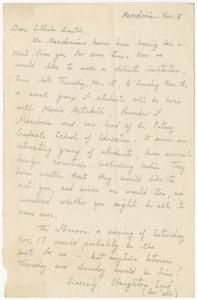 Macedonia, Nov. 5
Dear Lillian Smith,
We Macedonians have been hoping for a
visit from you for some time. Now we
would like to make a definite invitation.
From late Thursday, Nov. 15, to Sunday Nov. 18,
a small group of students will be here
with Morris Mitchell, founder of
Macedonia and now head of the Putney
Graduate School of Education. It is an
interesting group of students, from several
foreign countries, including India. They
have written that they would like to
visit you, and since we would too, we
wondered whether you might be able to
come over.
The afternoon or evening of Saturday
Nov. 17 would probably be the
best for us — but anytime between
Thursday and Sunday would be fine!
Sincerely, Staughton Lynd
(for all)